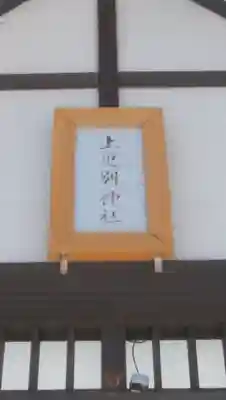 上更別神社